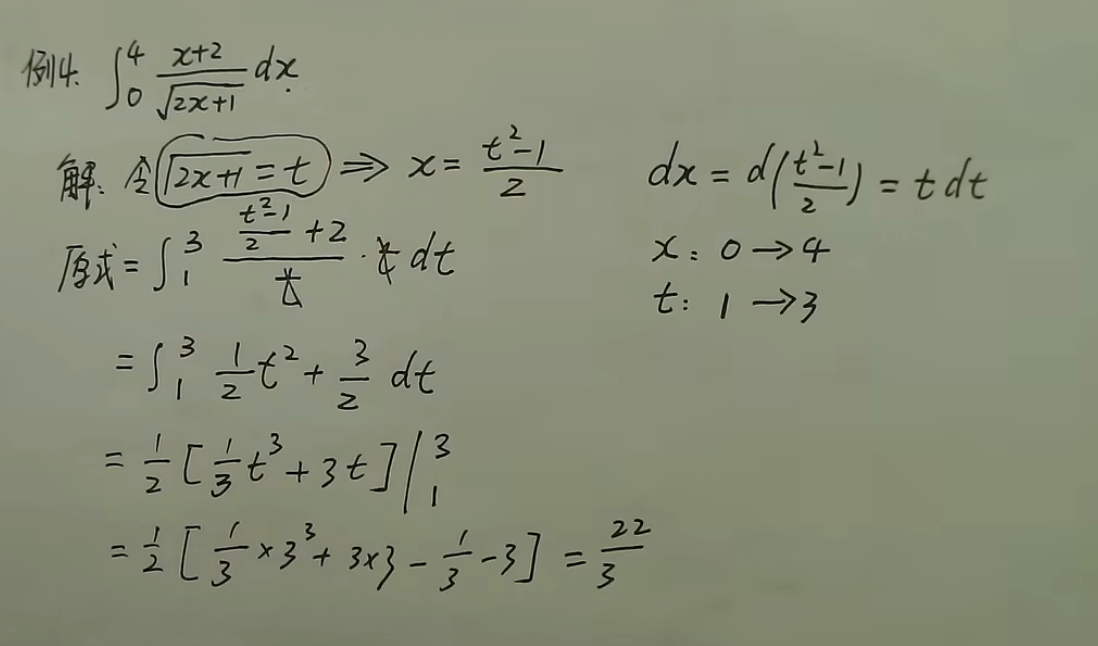 例4. ∫₀⁴ (x+2)/√(2x+1) dx.
解: 令 √(2x+1) = t ⇒ x = (t²-1)/2    dx = d((t²-1)/2) = t dt
x: 0 → 4
原式 = ∫₁³ ((t²-1)/2 + 2)/t · t dt
t: 1 → 3
= ∫₁³ 1/2 t² + 3/2 dt
= 1/2 [1/3 t³ + 3t] |₁³
= 1/2 [1/3 × 3³ + 3×3 - 1/3 - 3] = 22/3